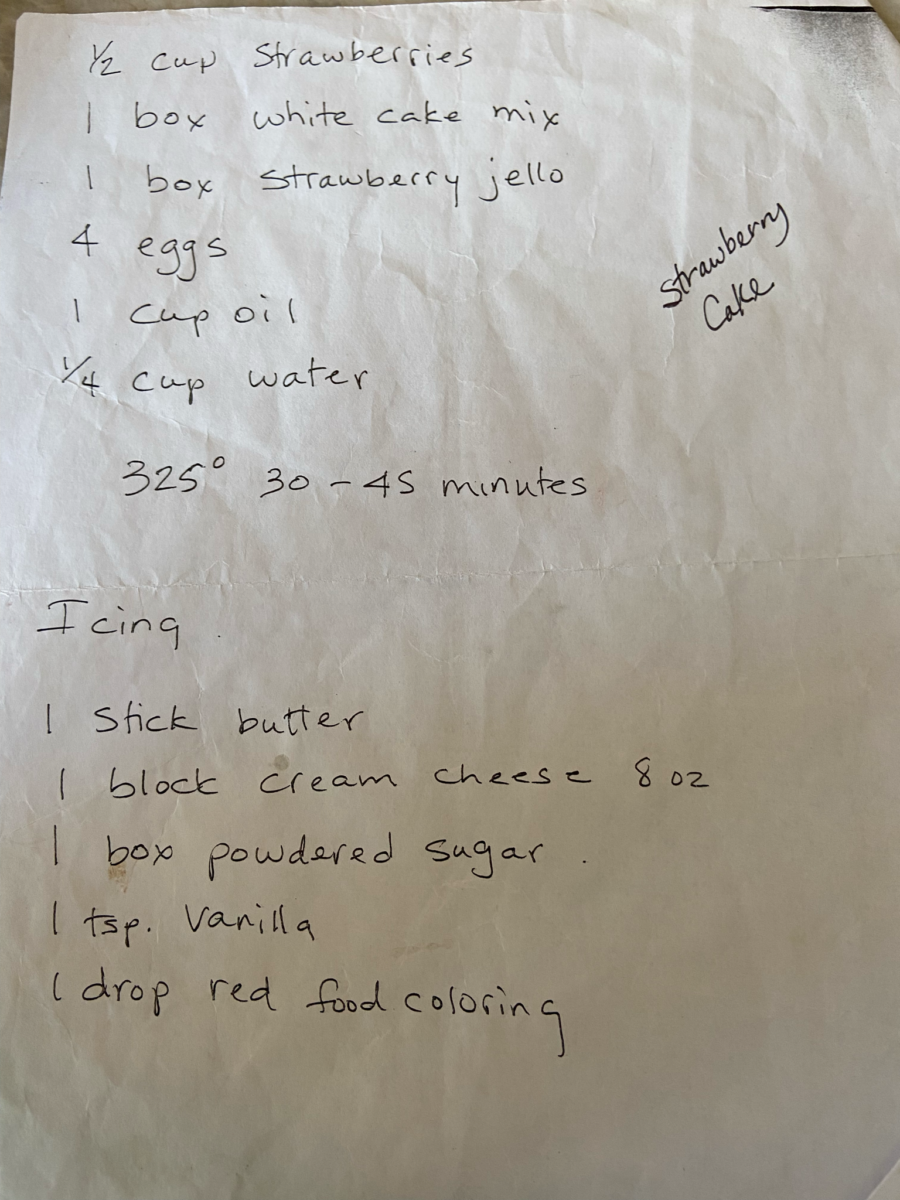 1/2 cup strawberries
1 box white cake mix
1 box strawberry jello
4 eggs
1 cup oil
1/4 cup water
strawberry
Cake
325° 30 - 45 minutes
Icing
1 stick butter
1 block cream cheese 8 oz
1 box powdered sugar.
1 tsp. Vanilla
1 drop red food coloring